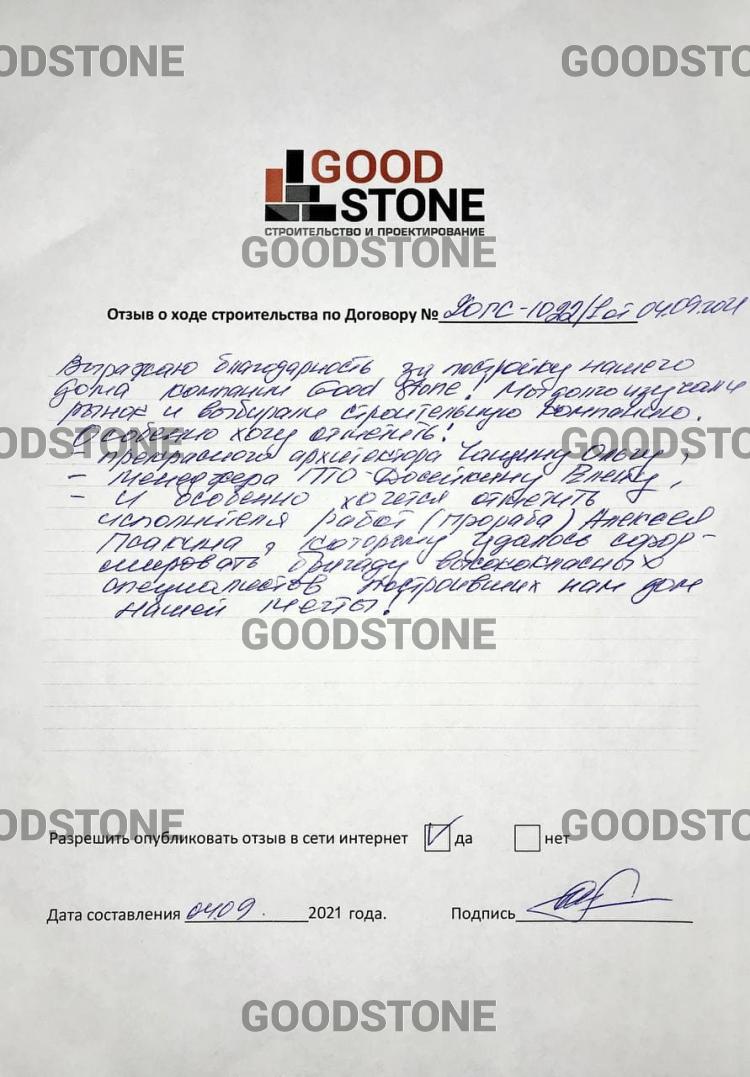 GOODSTONE GOODSTONE
GOOD
STONE
СТРОИТЕЛЬСТВО И ПРОЕКТИРОВАНИЕ
GOODSTONE
Отзыв о ходе строительства по Договору № ДОПС-1022/1 от 04.09.2021
Выражаю благодарность за постройку нашего
дома компании Good Stone! Мы долго изучали
рынок и выбирали строительную компанию.
GOODSTONE GOODSTONE
Особенно хочу отметить!
- прекрасного архитектора Чащину Ольгу,
- Менеджера ПТО - Елену,
- И особенно хочется отметить
исполнителя работ (прораба) Алексея
Псакина, которому удалось сфор-
мировать бригаду высококласных
специалистов построивших нам дом
нашей мечты!
GOODSTONE
GOODSTONE GOODSTONE
Разрешить опубликовать отзыв в сети интернет да нет
Дата составления 04.09. 2021 года. Подпись
GOODSTONE